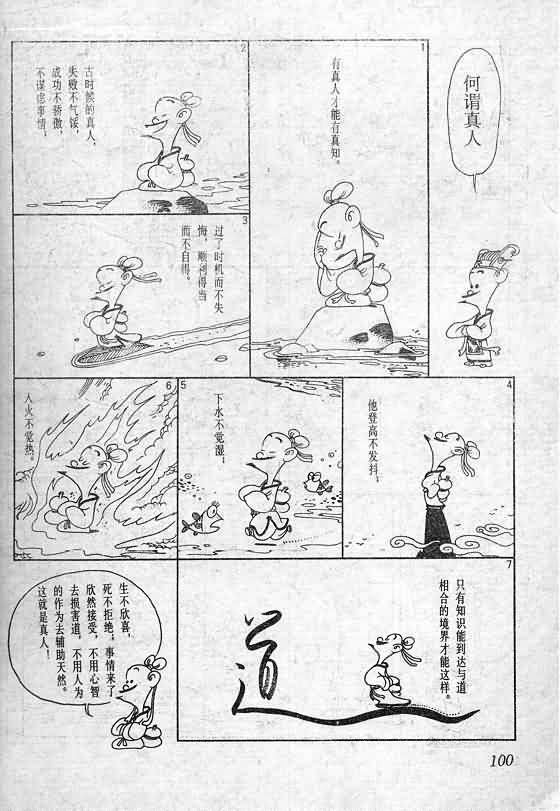 何谓真人
1
有真人才能有真知。
2
古时候的真人，
失败不气馁，
成功不骄傲，
不谋虑事情；
3
过了时机而不失
悔，顺利得当
而不自得。
4
他登高不发抖；
5
下水不觉湿；
6
入火不觉热。
7
只有知识能到达与道
相合的境界才能这样。
道
生不欣喜，
死不拒绝；事情来了
欣然接受，不用心智
去损害道，不用人为
的作为去辅助天然。
这就是真人！
100